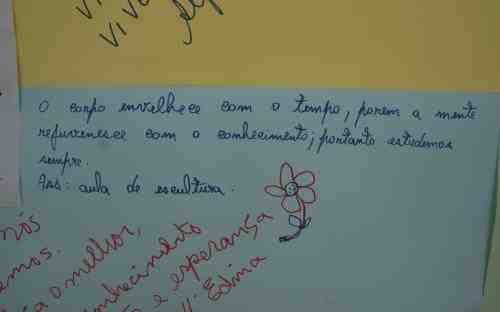 VIV
O corpo envelhece com o tempo, porem a mente
rejuvenesce com o conhecimento; portanto estudemos
sempre.
Ass: aula de escultura.
nós
emos.
o melhor,
conhecimento
e esperança
Edina